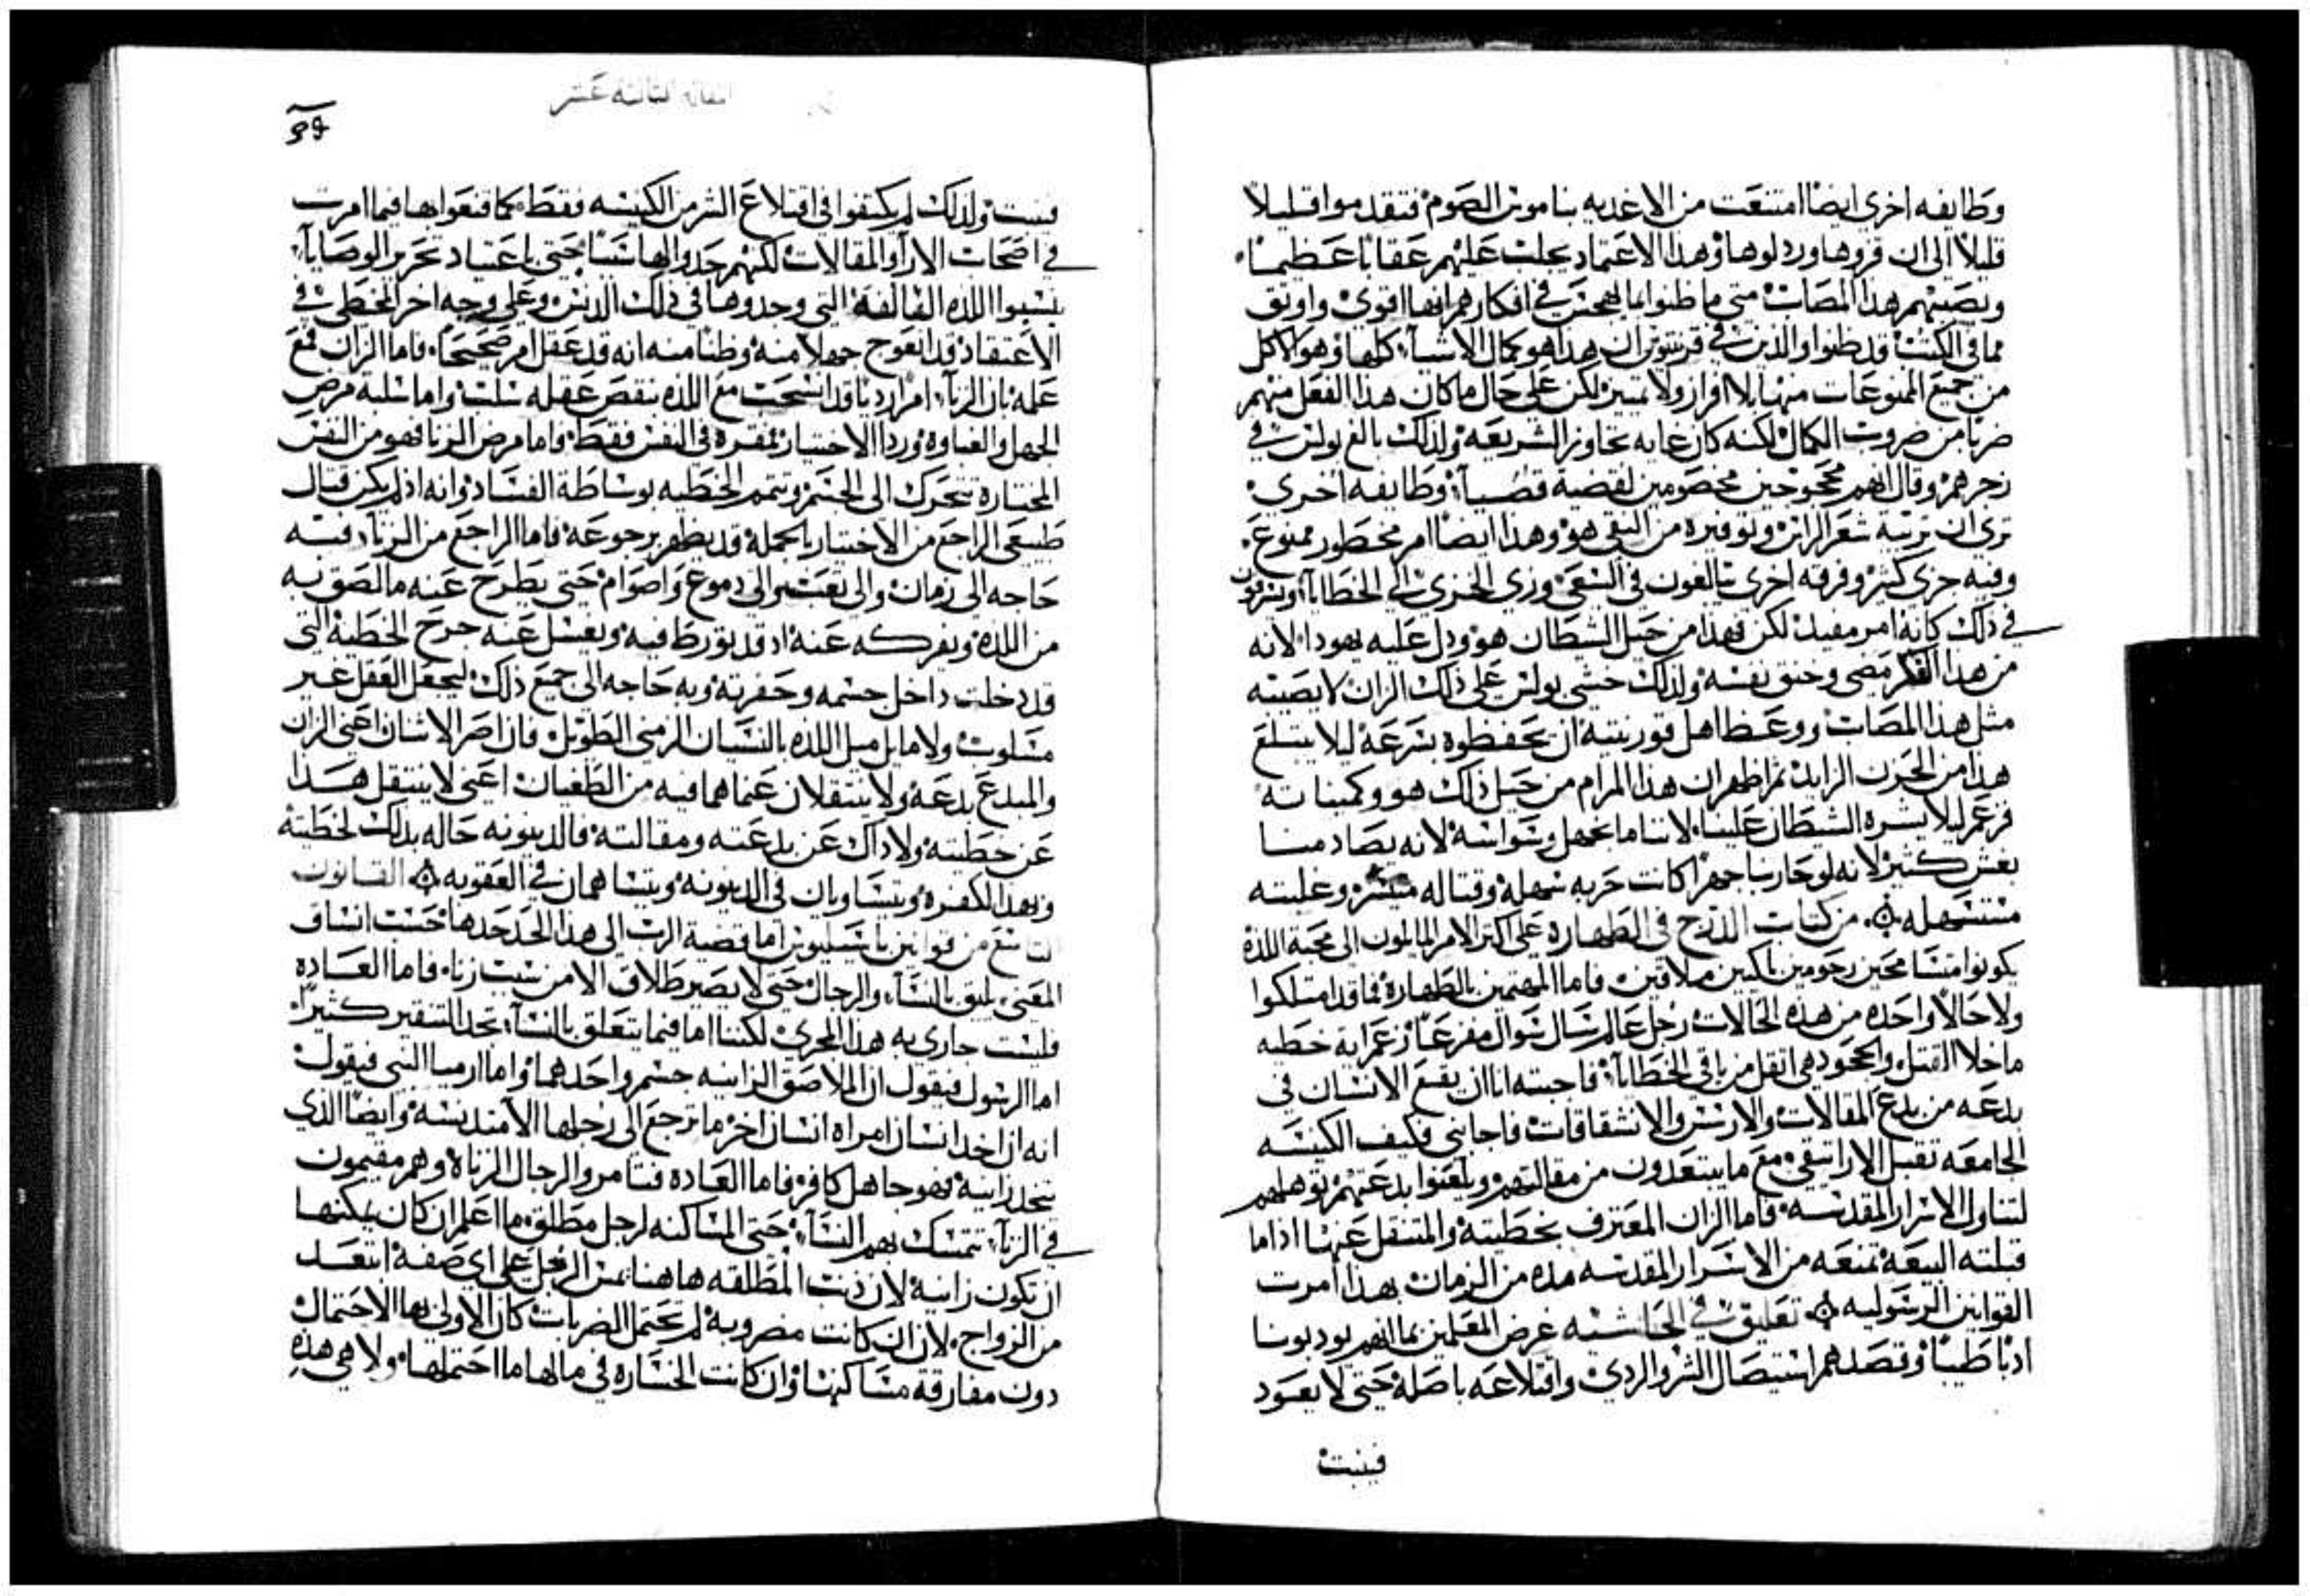 وطايفه اخري ايضا امتنعت من الاغديه بناموس الصوم فتقدموا قليلاً
قليلاً الى ان قروها وردلوها وهذا الاعتماد يجلب عليهم عقاباً عظيماً
ويصيبهم هذا المصاب متى ما ظنوا بما لهجس في افكارهم انها اقوى واوثق
مما في الكتب قد ظنوا والذين في قرنتوس ان هذا هو كمال الاشيا كلها وهو الاكل
من جميع الممنوعات منها بلا افراز ولا تمييز لكن على حال ما كان هذا الفعل منهم
ضرباً من ضروب الكمال لكنه كان غايه تجاوز الشريعه ولذلك بالغ بولس في
زجرهم وقال انهم محجوجين مخصومين لقضية قصيا وطايفه اخري
تري ان تربية شعر الراس وتوفيره من التقى هو وهذا ايضا امر محظور ممنوع
وفيه خزى كثير وفرقه اخرى يبالغون في السعى وزى الخزى الى الخطايا ويسرفون
في ذلك كانه امر مفيد لكن فهذا من حيل الشيطان هو ودل عليه يهودا لانه
من هدا الفكر مضى وخنق نفسه ولذلك خشى بولس على ذلك الزان لا يصيبه
مثل هذا المصاب ووعظ اهل قورنتيه ان يحفظوه بسرعة ليلا يبتلع
هذا من الحزن الزايد ثم اظهر ان هذا المرام من حيل ذاك هو وكميناته
فزعم ليلا يشره الشيطان علينا لاننا ما نجهل وسواسه لانه يصادمنا
بغش كثير لانه لو حاربنا جهراً كانت حربه سهله وقتاله ميسر وغلبته
مستسهله من كتاب الدرج في الطهاره على اكثر الامر المايلون الى محبة اللذه
يكونوا متسامحين رحومين باكيين ملاقين فاما المهتمين بالطهاره فما قد امتلكوا
ولا حالاً واحده من هذه الحالات رجل عالم سال سوال مفزعاً زعم اية خطيه
ما خلا القتل والجحود هي اثقل من باقي الخطايا فاجبته انا ان يقع الانسان في
بدعه من بدع المقالات والارسس والانشقاقات فاجابني فكيف الكنيسه
الجامعه تقبل الاراتيقى مع ما يبتعدون من مقالتهم ويلعنوا بدعتهم توهلهم
لتناول الاسرار المقدسه فاما الزان المعترف بخطيته والمتنقل عنها اذا ما
قبلته البيعه تمنعه من الاسرار المقدسه مده من الزمان بهذا امرت
القوانين الرسوليه تعليق في الحاشيه غرض المعلمين بما انهم يودبونا
ادباً طيباً وقصدهم استيصال الشر والردى واقتلاعه باصله حتى لا يعود
فينبت
المقاله الثالثه عشر
فينبت ولذلك لم يكتفوا في اقتلاع الشر من الكنيسه فقط كما قنعوا بها فيما امرت
في اصحاب الارا والمقالات لكنهم حدوا لها شيئا حتى باعتياد تحرير الوصايا
ينسبوا اللذه السالفة التي وجدوها في ذلك الدنس وعلى وجه اخر المخطى في
الاعتقاد قد انعوج جهلاً منه وظناً منه انه قد عقل امر صحيحاً فاما الزان فمع
علمه بان الزنا امر ارديا قد انسحب مع اللذه بنقص عقله سلب واما سلبه مرض
الجهل والغباوه وردا الاختيار بمفرده في النفس فقط واما مرض الزنا فهو من النفس
المختاره تتحرك الى الجسم ويتمم الخطيه بوساطة الفساد وانه اذ لم يكن قتال
طبيعى الراجع من الاختيار بالجمله قد يطهر برجوعه فاما الراجع من الزنا فبه
حاجه الى زمان والى تعب والى دموع واصوام حتى يطرح عنه ما لصق به
من اللذه ويفركه عنه اد قد تورط فيه ويغسل عنه جرح الخطية التي
قد دخلت داخل جسمه وحفرته وبه حاجه الى جميع ذلك ليجعل العقل غير
مسلوب ولا مايل ميل اللذه بالنسيان الزمني الطويل فان اصر الانسان اعني الزان
والمبدع بدعة ولا ينتقلان عما هما فيه من الطغيان اعني لا ينتقل هذا
عن خطيته ولا ذاك عن بدعته ومقالته فالدينونه حاله بذلك لخطيته
وبهذا لكفره ويتساويان في الدينونه ويتساهمان في العقوبه القانون
التاسع من قوانين باسيليوس اما قضية الرب الى هذا الحد حدها حسب انساق
المعنى يليق بالنسا والرجال حتى لا يصير طلاق الا من سبب زنا فاما العاده
فليست جاري به هذا المجرى لكننا اما فيما يتعلق بالنسا نجد التنقير كثيراً
اما الرسول فيقول ان الملاصق الزانيه جسم واحد هما واما ارميا النبي فيقول
انه ان اخذ انسان امراه انسان اخر ما ترجع الى رجلها الا متدنسه وايضاً الذي
يتخذ زانية فهو جاهل كافر فاما العاده فتامر والرجال الزناه وهم مقيمون
في الزنا تتمسك بهم النسا حتى المساكنه لرجل مطلق ما اعلم ان كان يمكنها
ان تكون زانية لان ذنب المطلقه هاهنا يمس الرجل على اي صفة ابتعد
من الزواج لان ان كانت مضروبه لم تحتمل الضربات كان الاولى بها الاحتمال
دون مفارقة مساكنها وان كانت الخساره في مالها ما احتملها ولا هي هذه